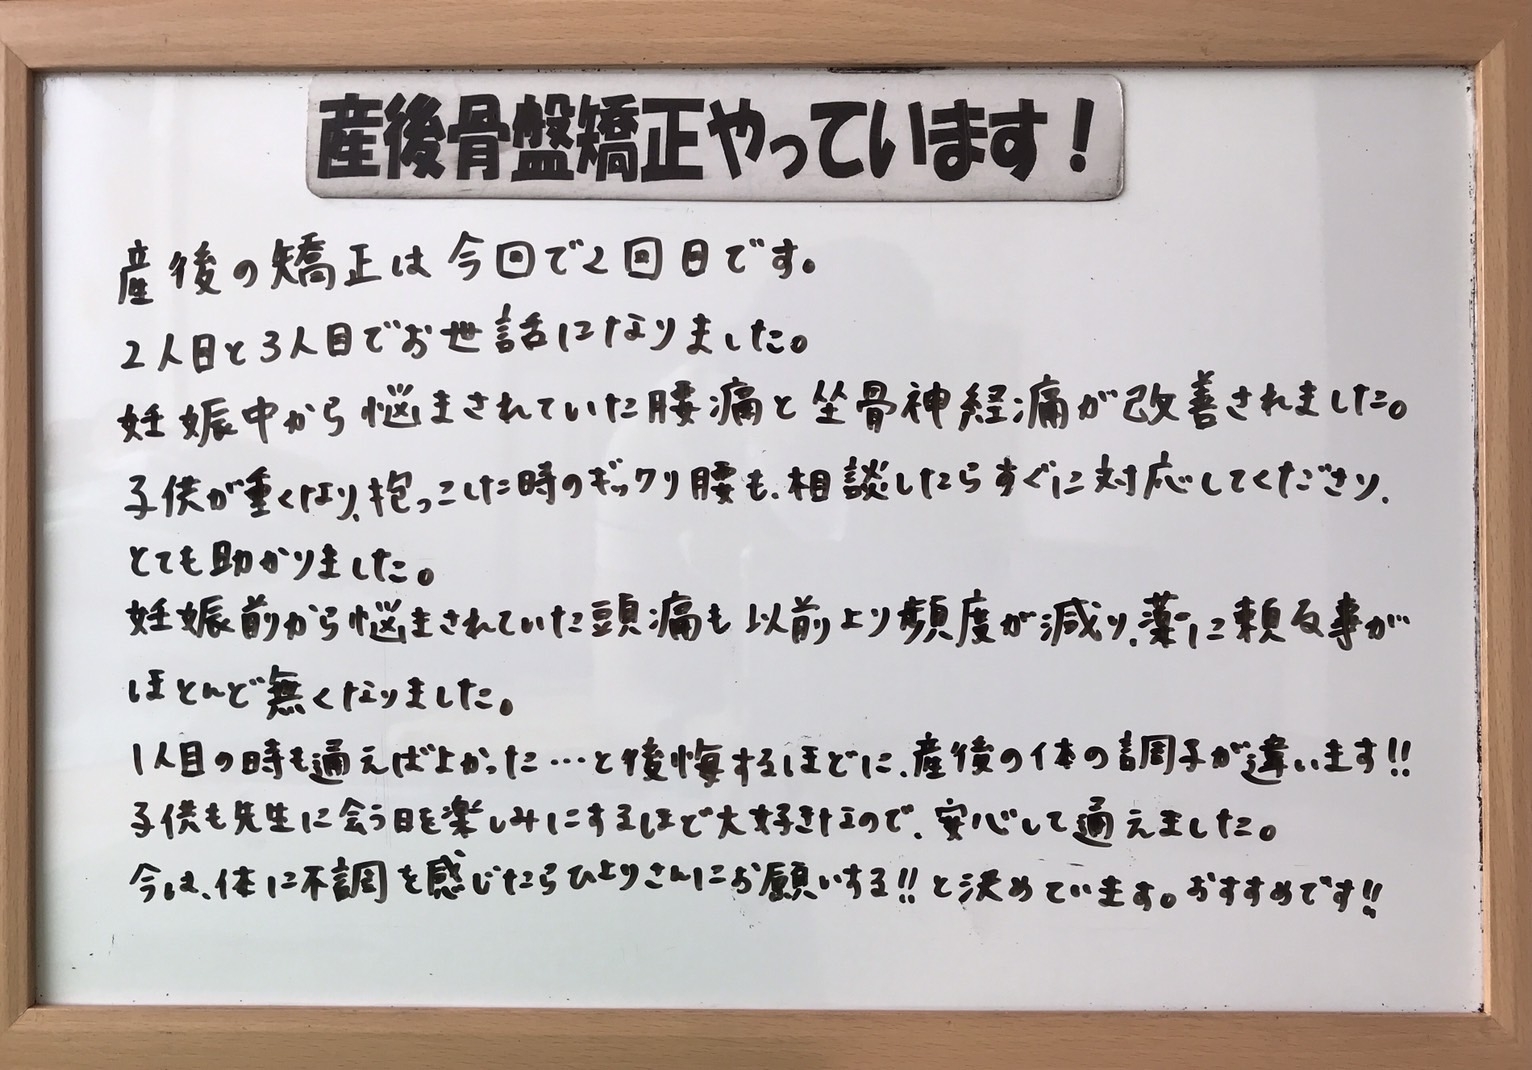 産後骨盤矯正やっています!
産後の矯正は今回で2回目です。
2人目と3人目でお世話になりました。
妊娠中から悩まされていた腰痛と坐骨神経痛が改善されました。
子供が重くなり、抱っこした時のギックリ腰も、相談したらすぐに対応してくださり、
とても助かりました。
妊娠前から悩まされていた頭痛も以前より頻度が減り、薬に頼る事が
ほとんど無くなりました。
1人目の時も通えばよかった…と後悔するほどに、産後の体の調子が違います!!
子供も先生に会う日を楽しみにするほど大好きなので、安心して通えました。
今は、体に不調を感じたらひよりさんにお願いする!!と決めています。おすすめです!!